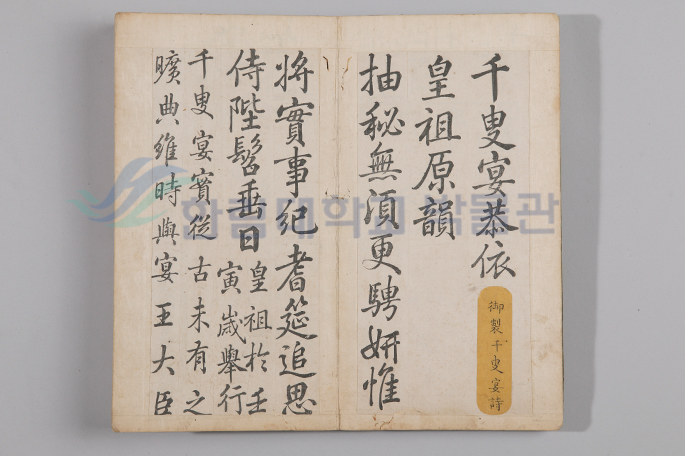 千叟宴恭依
御製千叟宴詩
皇祖原韻
抽秘無須更騁妍惟
將實事紀耆筵追思
侍陛髫垂日
皇祖於壬
寅歲舉行
千叟宴實從古未有之
曠典維時與宴王大臣
한림대학교 박물관